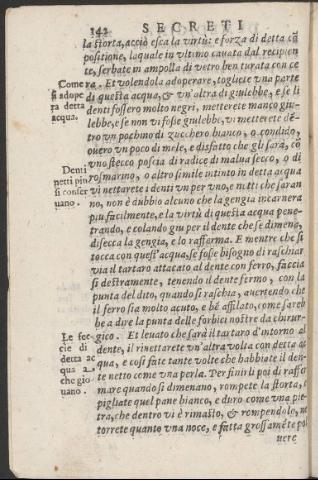 142 SECRETI
la storta, acciò esca la virtù: e forza di detta cō
positione, laquale in vltimo cauata dal recipien
te, serbate in ampolla di vetro ben turata con ce
Come
si adope
ra detta
acqua.
ra. Et volendola adoperare, togliete vna parte
di questa acqua, & vn'altra di giulebbe, e se li
denti fossero molto negri, metterete manco giu-
lebbe, e se non vi fosse giulebbe, vi metterete dē-
tro vn pochino di zucchero bianco, o condido,
ouero vn poco di mele, e disfatto che gli sarà, cō
Denti
netti pin
si conser
uano.
vno stecco poscia di radice di malua secco, o di
rosmarino, o altro simile intinto in detta acqua
vi nettarete i denti vn per vno, e netti che saran
no, non è dubbio alcuno che la gengia incarnera
piu facilmente, e la virtù di questa acqua pene-
trando, e colando giu per il dente che se dimena,
disecca la gengia, e lo rafferma. E mentre che si
tocca con quest'acqua, se fosse bisogno di raschiar
via il tartaro attacato al dente con ferro, faccia
si destramente, tenendo il dente fermo, con la
punta del dito, quando si raschia, auertendo che
il ferro sia molto acuto, e bē affilato, come sareb
be a dire la punta delle forbici nostre da chirur-
Le fec
cie di
detta ac
qua a,
che gio
uano.
gico. Et leuato che sarà il tartaro d'intorno al
dente, il rinettarete vn'altra volta con detta ac
qua, e cosi fate tante volte che habbiate il den-
te netto come vna perla. Per finirli poi di raffer
mare quando si dimenano, rompete la storta, e
pigliate quel pane bianco, e duro come vna pie-
tra, che dentro vi è rimasto, & rompendolo, ne
torrete quanto vna noce, e fatta grossamēte pol
uere